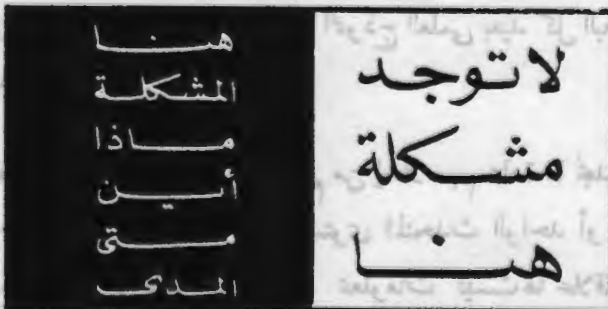 لا توجد
مشكلة
هنا
هنا
المشكلة
ماذا
أين
متى
المدى